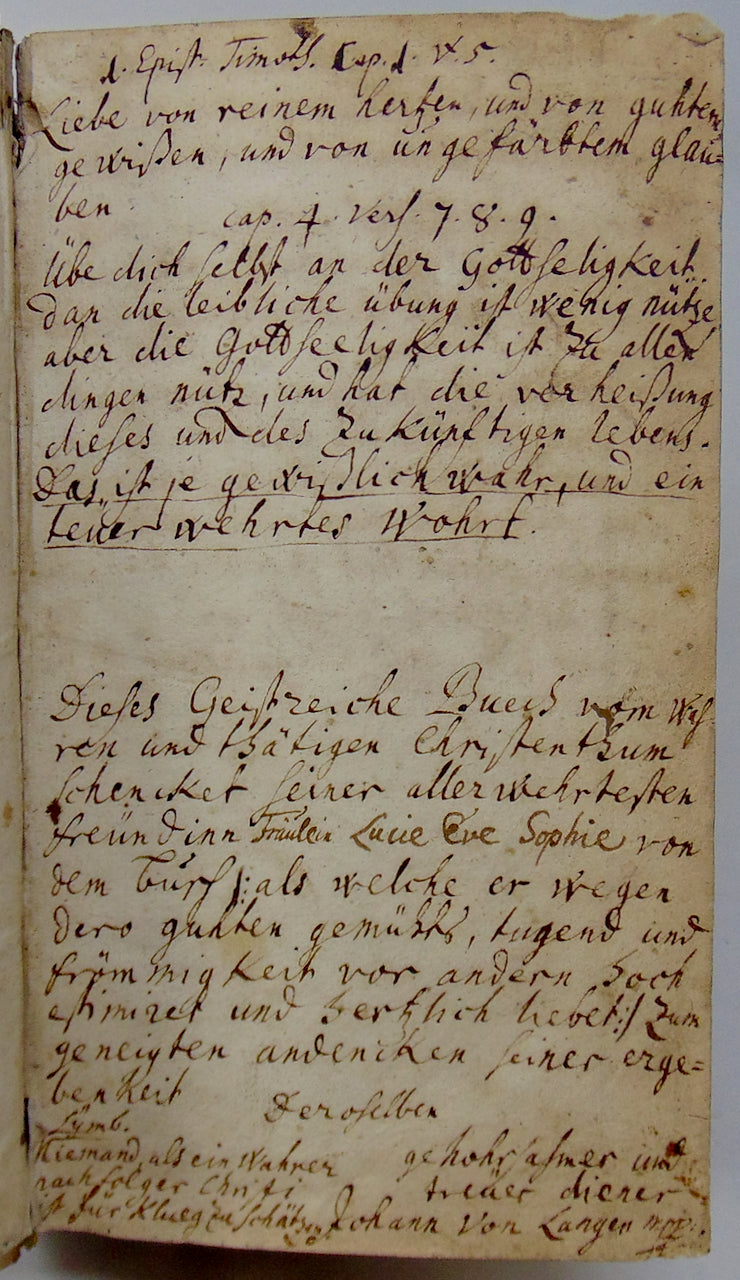 1. Epist. Timoth. Cap. 1. V. 5.
Liebe von reinem hertzen, und von guhtem
gewißen, und von ungefärbtem glau=
ben
cap. 4. Vers. 7. 8. 9.
Übe dich selbst an der Gottseligkeit.
dan die leibliche übung ist wenig nütze
aber die Gottseeligkeit ist zu allen
dingen nütz, und hat die verheißung
dieses und des zukünftigen lebens.
Das ist je gewißlich wahr, und ein
teüer wehrtes Wohrt.
Dieses Geistreiche Buech vom Wah=
ren und thätigen Christenthum
schencket seiner allerwehrtesten
freündinn Fräulein Lucie Eve Sophie von
dem Bussch /: als welche er wegen
dero guhten gemühts, tugend und
frömmigkeit vor andern hoch
estimiret und hertzlich liebet :/ zum
geneigten andencken seiner erge=
benheit
Deroselben
Symb.
Niemand, als ein Wahrer
nachfolger Christi
ist für Klueg zu schätzen
gehohrsahmer und
treuer diener
Johann von Langen mpp.